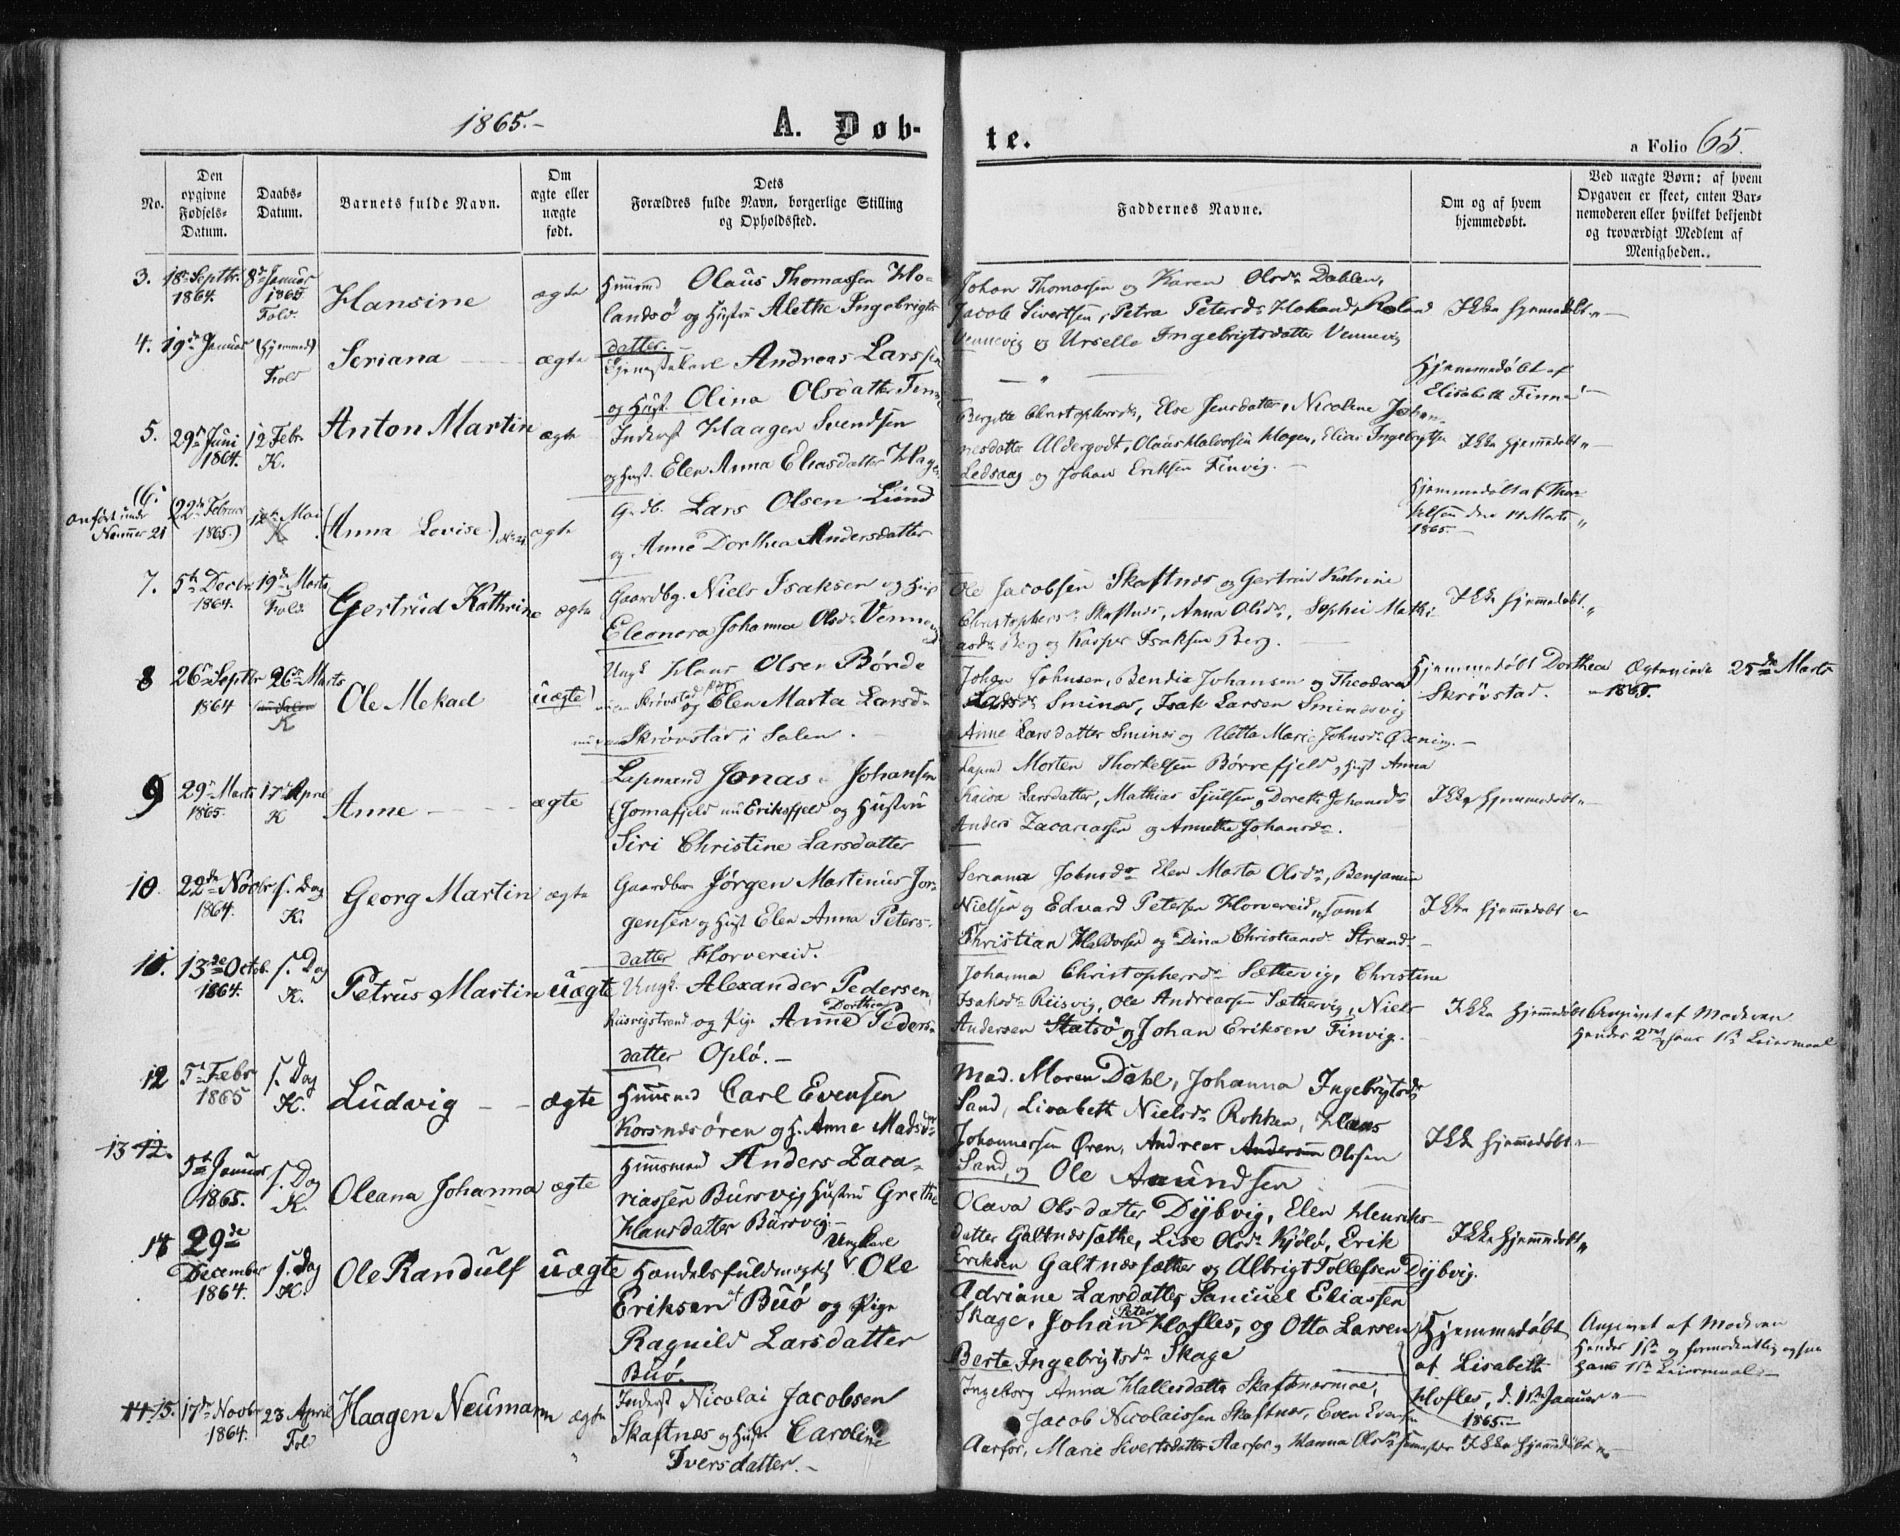 1865.-
A. Døb-
te.
a Folio 65.
No.
Den opgivne Fødsels-Datum.
Daabs-Datum.
Barnets fulde Navn.
Om ægte eller uægte født.
Dets Forældres fulde Navn, borgerlige Stilling og Opholdssted.
Faddernes Navne.
Om og af hvem hjemmedøbt.
Ved uægte Børn: af hvem Opgaven er skeet, enten Barnemoderen eller hvilket bekjendt og troværdigt Medlem af Menigheden.
3. 18de Septbr. 1864. 8de Januar 1865 Fold. Hansine ægte
Huusmd Olaus Thomassen Ho-
landsø og Hustru Alethe Ingebrigts
datter.
Johan Thomassen og Karen Olsdr Dahlen,
Jacob Sivertsen, Petra Petersdr
Vennevig og Urselle Ingebrigtsdatter Vennevig
Ikke hjemmedøbt.
4. 19de Januar (hjemmed) Fold Seriana ægte
Tjenestekarl Andreas Larssen
og Hust. Olina Olsdatter
Hjemmedøbt af
Elisabeth Finne
5. 29de Juni 1864. 12 Febr. K. Anton Martin ægte
Inderst Haagen Svendsen
og Hust. Elen Anna Eliasdatter
Bergitte Christophersdr, Else Jensdatter, Nicoline Johan-
nesdatter Aldergodt, Olaus Halvorsen Hagen, Elias Ingebrigtsen
Ledsaag og Johan Eriksen Finvig.
Ikke hjemmedøbt
(6. anført under Nummer 21 (22de Februar 1865.) Mai K (Anna Lovise) No 21 ægte
Grdb. Lars Olsen Lund
og Anne Dorthea Andersdatter
Hjemmedøbt af Thor-
kelsen den 14 Marts
1865.
7. 5te Decbr. 1864. 19de Marts Fold. Gertrud Kathrine ægte
Gaardbg. Niels Isaksen og Hust
Eleonora Johanna Olsdr
Ole Jacobsen Skaftnæs og Gertrud Katrine
Christophersdr Skaftnæs, Anna Olsdr, Sophie Math-
asdr Berg og Kasper Isaksen Berg.
Ikke hjemmedøbt.
8 26de Septbr 1864 26de Marts K Ole Mekal uægte
Ungk. Hans Olsen Børde
Skrøvstad og Pige Elen Marta Larsdr
Skrøvstad i Salen.
Johan Johnsen, Bendia Johansen og Theodora
Larsdr Sminæs, Isak Larsen
Anne Larsdatter Sminæs og Marie Johnsdr
Hjemmedøbt Dorthea
Skrøvstad.
25de Marts
1865.
9 29de Marts 1865. 17de April K Anne ægte
Lapmand Jonas Johansen
(Jomafjeld nu Eriksfjeld og Hustru
Siri Christine Larsdatter
Lapmd Morten Thorkelsen Børrefjeld, Hust Anna
Larsdatter, Mathias Sjulsen, Dorete Johansdr
Anders Zacariassen og Annethe Johansdr.
Ikke hjemmedøbt
10. 22de Novbr 1864. s. Dag K. Georg Martin ægte
Gaardbr Jørgen Martinus Jør-
gensen og Hust Elen Anna Peters-
datter Horvereid.
Seriana Johnsdr Elen Marta Olsdr, Benjamin
Nielsen og Edvard Petersen Horvereid, samt
Christian Haldorsen og Dina Christiansdr Strand
Ikke hjemmedøbt
11. 13de Octob. 1864. s. Dag K. Petrus Martin uægte
Ungk. Alexander Pedersen,
Riisvigstrand og Pige Anne Dorthea Peders-
datter Oplø.
Johanna Christophersdr Sættervig, Christine
Isaksdr Riisvig, Ole Andreassen Sættervig, Niels
Andersen Statsø og Johan Eriksen Finvig.
Ikke hjemmedøbt
Angivet af Moderen
Hendes 2det hans 1ste Leiermaal
12 5te Febr 1865 s. Dag K. Ludvig ægte
Huusmd Carl Evensen
Korsnæsøren og H. Anne Madsdr
Mad. Maren Dahl, Johanna Ingebrigtsdr
Sand, Lisabeth Nielsdr Rokken, Hans
Johannessen Øren, Andreas Andersen Olsen
Sand, og Ole Amundsen
Ikke hjemmedøbt
13 12. 5te Januar 1865. s. Dag K. Oleana Johanna ægte
Huusmand Anders Zaca-
riassen Bursvig, Hustru Grethe
Hansdatter Bursvig
Olava Olsdatter Dybvig, Elen Henriks-
datter Galtnessæther, Lise Olsdr Kjølø, Erik
Eriksen Galtnessæther og Albrigt Tollefsen Dybvig.
Ikke hjemmedøbt
14 29de December 1864. s. Dag K. Ole Randulf uægte
Ungkarl
Handelsfuldmægtig Ole
Eriksen af Buø og Pige
Ragnild Larsdatter
Buø.
Adriane Larsdatter, Samuel Eliassen
Skage, Johan Peter Hofles, og Otto Larsen
Berte Ingebrigtsdr Skage
Hjemmedøbt
af Lisabeth
Hofles, d. 1ste Januar
1865.
Angivet af Moderen
Hendes 1ste og formodentlig ogsaa
hans 1ste Leiermaal.
14 15. 17de Novbr 1864. 23 April Fold Haagen Neumann ægte
Inderst Nicolai Jacobsen
Skaftnæs og Hustr Caroline
Iversdatter.
Ingeborg Anna Hallesdatter Skaftnæsmoe,
Jacob Nicolaissen Skaftnæs, Even Evensen
Aarfor, Marie Sivertsdatter Aarfor og Hanna Olsdr
Ikke hjemmedøbt